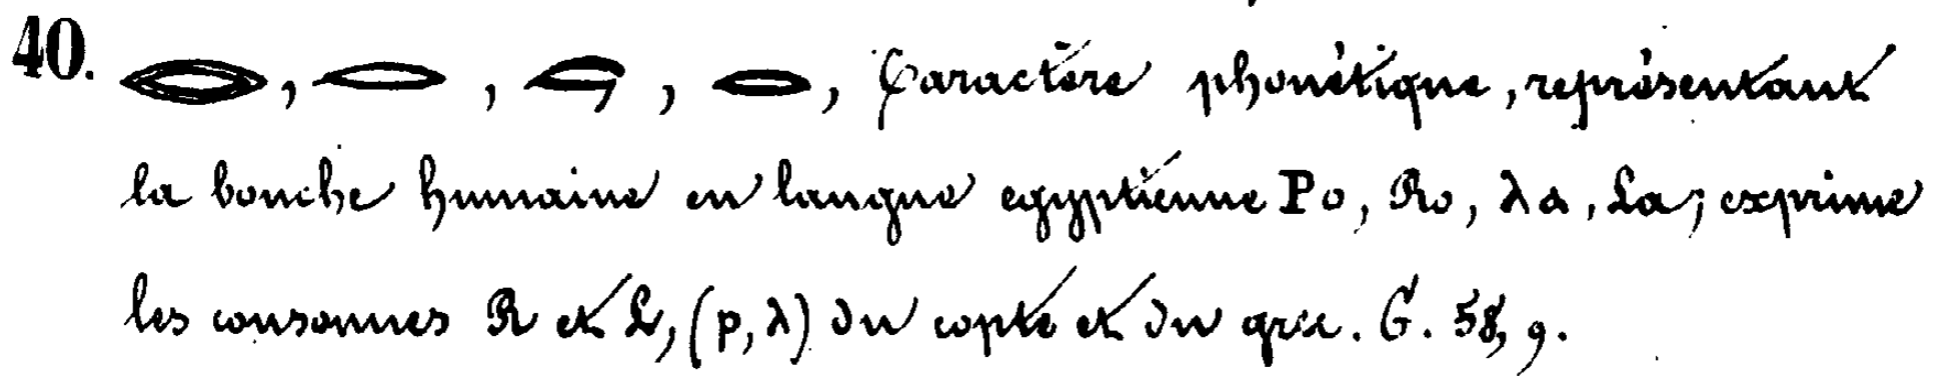 40. 𓂋, 𓂋, 𓂋, 𓂋, Caractère phonétique, représentant
la bouche humaine en langue egyptienne Ⲣo, Ro, λα, La; exprime
les consonnes R et L, (ⲣ, λ) du copte et du grec. G. 58, 9.